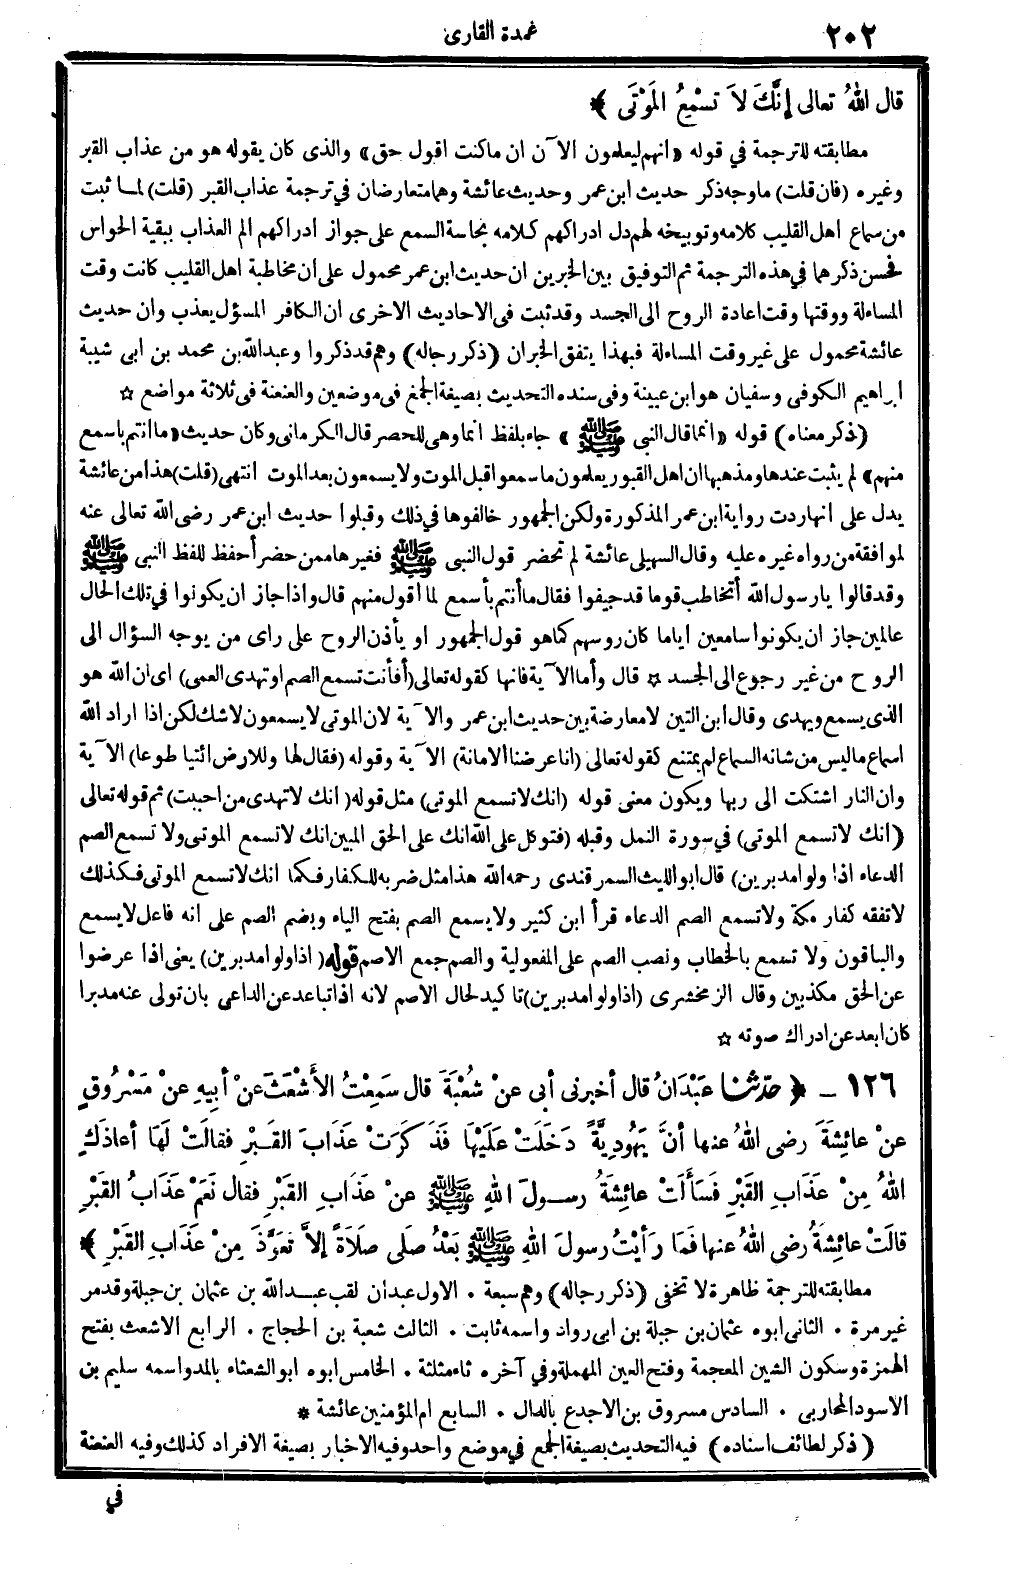 ٢٠٢
عمدة القارى
قال اللهُ تعالى إنَّكَ لاَ تسْمِعُ المَوْتَى ﴾
مطابقته للترجمة في قوله «انهم ليعلمون الآن ان ما كنت اقول حق» والذى كان يقوله هو من عذاب القبر
وغيره (فان قلت) ما وجه ذكر حديث ابن عمر وحديث عائشة وهما متعارضان في ترجمة عذاب القبر (قلت) لمـا ثبت
من سماع اهل القليب كلامه وتوبيخه لهم دل ادراكهم كلامه بحاسة السمع على جواز ادراكهم الم العذاب ببقية الحواس
فحسن ذكرهما في هذه الترجمة ثم التوفيق بين الخبرين ان حديث ابن عمر محمول على ان مخاطبة اهل القليب كانت وقت
المساءلة ووقتها وقت اعادة الروح الى الجسد وقد ثبت فى الاحاديث الاخرى ان الكافر المسؤل يعذب وان حديث
عائشة محمول على غير وقت المساءلة فبهذا يتفق الخبران (ذكر رجاله) وهم قد ذكروا وعبدالله بن محمد بن ابى شيبة
ابراهيم الكوفى وسفيان هو ابن عيينة وفى سنده التحديث بصيغة الجمع فى موضعين والعنعنة فى ثلاثة مواضع ☆
(ذكر معناه) قوله «انما قال النبى ﷺ » جاء بلفظ انما وهى للحصر قال الكرمانى وكان حديث «ما انتم باسمع
منهم» لم يثبت عندها ومذهبها ان اهل القبور يعلمون ما سمعوا قبل الموت ولا يسمعون بعد الموت انتهى (قلت) هذا من عائشة
يدل على انها ردت رواية ابن عمر المذكورة ولكن الجمهور خالفوها في ذلك وقبلوا حديث ابن عمر رضى الله تعالى عنه
لموافقة من رواه غيره عليه وقال السهيلى عائشة لم تحضر قول النبى ﷺ فغيرها ممن حضر أحفظ للفظ النبى ﷺ
وقد قالوا يا رسول الله أتخاطب قوما قد جيفوا فقال ما أنتم بأسمع لما اقول منهم قال واذا جاز ان يكونوا في تلك الحال
عالمين جاز ان يكونوا سامعين اياما كان روسهم كما هو قول الجمهور او يأذن الروح على راى من يوجه السؤال الى
الروح من غير رجوع الى الجسد ☆ قال وأما الآية فانها كقوله تعالى (أفأنت تسمع الصم او تهدى العمى) اى ان الله هو
الذى يسمع ويهدى وقال ابن التين لا معارضة بين حديث ابن عمر والآية لان الموتى لا يسمعون لا شك لكن اذا اراد الله
اسماع ما ليس من شانه السماع لم يمتنع كقوله تعالى (انا عرضنا الامانة) الآية وقوله (فقال لها وللارض ائتيا طوعا) الآية
وان النار اشتكت الى ربها ويكون معنى قوله (انك لا تسمع الموتى) مثل قوله ( انك لا تهدى من احببت) ثم قوله تعالى
(انك لا تسمع الموتى) في سورة النمل وقبله (فتوكل على الله انك على الحق المبين انك لا تسمع الموتى ولا تسمع الصم
الدعاء اذا ولوا مدبرين) قال ابو الليث السمرقندى رحمه الله هذا مثل ضربه للكفار فكما انك لا تسمع الموتى فكذلك
لا تفقه كفار مكة ولا تسمع الصم الدعاء قرأ ابن كثير ولا يسمع الصم بفتح الياء وبضم الصم على انه فاعل لا يسمع
والباقون ولا تسمع بالخطاب ونصب الصم على المفعولية والصم جمع الاصم قوله ( اذا ولوا مدبرين) يعنى اذا عرضوا
عن الحق مكذبين وقال الزمخشرى (اذا ولوا مدبرين) تاكيد لحال الاصم لانه اذا تباعد عن الداعى بان تولى عنه مدبرا
كان ابعد عن ادراك صوته ☆
١٢٦ ــ ﴿ حدّثنا عَبْدَانُ قال أخبرنى أبى عنْ شُعْبَةَ قال سَمِعْتُ الأَشْعَثَ عنْ أبيهِ عنْ مَسْرُوقٍ
عنْ عائِشَةَ رضى اللهُ عنها أنَّ يَهُودِيَّةً دَخَلَتْ عَلَيْهَا فَذَكَرَتْ عَذَابَ القَبْرِ فقالَتْ لَهَا أعاذَكِ
اللهُ مِنْ عَذَابِ القَبْرِ فَسَأَلَتْ عائِشَةُ رسولَ اللهِ ﷺ عنْ عَذَابِ القَبْرِ فقال نَعَمْ عَذَابُ القَبْرِ
قالَتْ عائِشَةُ رضى اللهُ عنها فَمَا رَأيْتُ رسولَ اللهِ ﷺ بَعْدُ صلى صَلاَةً إلاَّ تَعَوَّذَ مِنْ عَذَابِ القَبْرِ ﴾
مطابقته للترجمة ظاهرة لا تخفى (ذكر رجاله) وهم سبعة . الاول عبدان لقب عبد الله بن عثمان بن جبلة وقد مر
غير مرة . الثانى ابوه عثمان بن جبلة بن ابى رواد واسمه ثابت . الثالث شعبة بن الحجاج . الرابع الاشعث بفتح
الهمزة وسكون الشين المعجمة وفتح العين المهملة وفي آخره ثاء مثلثة . الخامس ابوه ابو الشعثاء بالمد واسمه سليم بن
الاسود المحاربى . السادس مسروق بن الاجدع بالدال . السابع ام المؤمنين عائشة *
(ذكر لطائف اسناده) فيه التحديث بصيغة الجمع في موضع واحد وفيه الاخبار بصيغة الافراد كذلك وفيه العنعنة
في